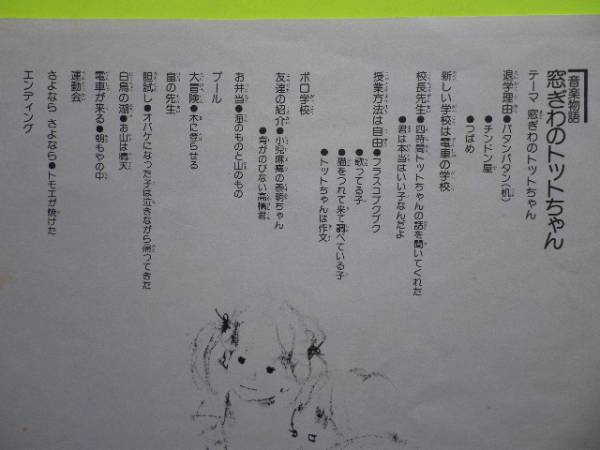 音楽物語
窓ぎわのトットちゃん
テーマ 窓ぎわのトットちゃん
退学理由●バタンバタン(机)
●チンドン屋
●つばめ
新しい学校は電車の学校
校長先生●四時間トットちゃんの話を聞いてくれた
●君は本当はいい子なんだよ
授業方法は自由●フラスコブクブク
●歌ってる子
●猫をつれて来て調べている子
●トットちゃんは作文
ボロ学校
友達の紹介●小児麻痺の泰明ちゃん
●背がのびない高橋君
お弁当●海のものと山のもの
プール
大冒険●木に登らせる
畠の先生
胆試し●オバケになった子は泣きながら帰ってきた
白鳥の湖●お山は晴天
電車が来る●朝もやの中
運動会
さよなら さよなら●トモエが焼けた
エンディング